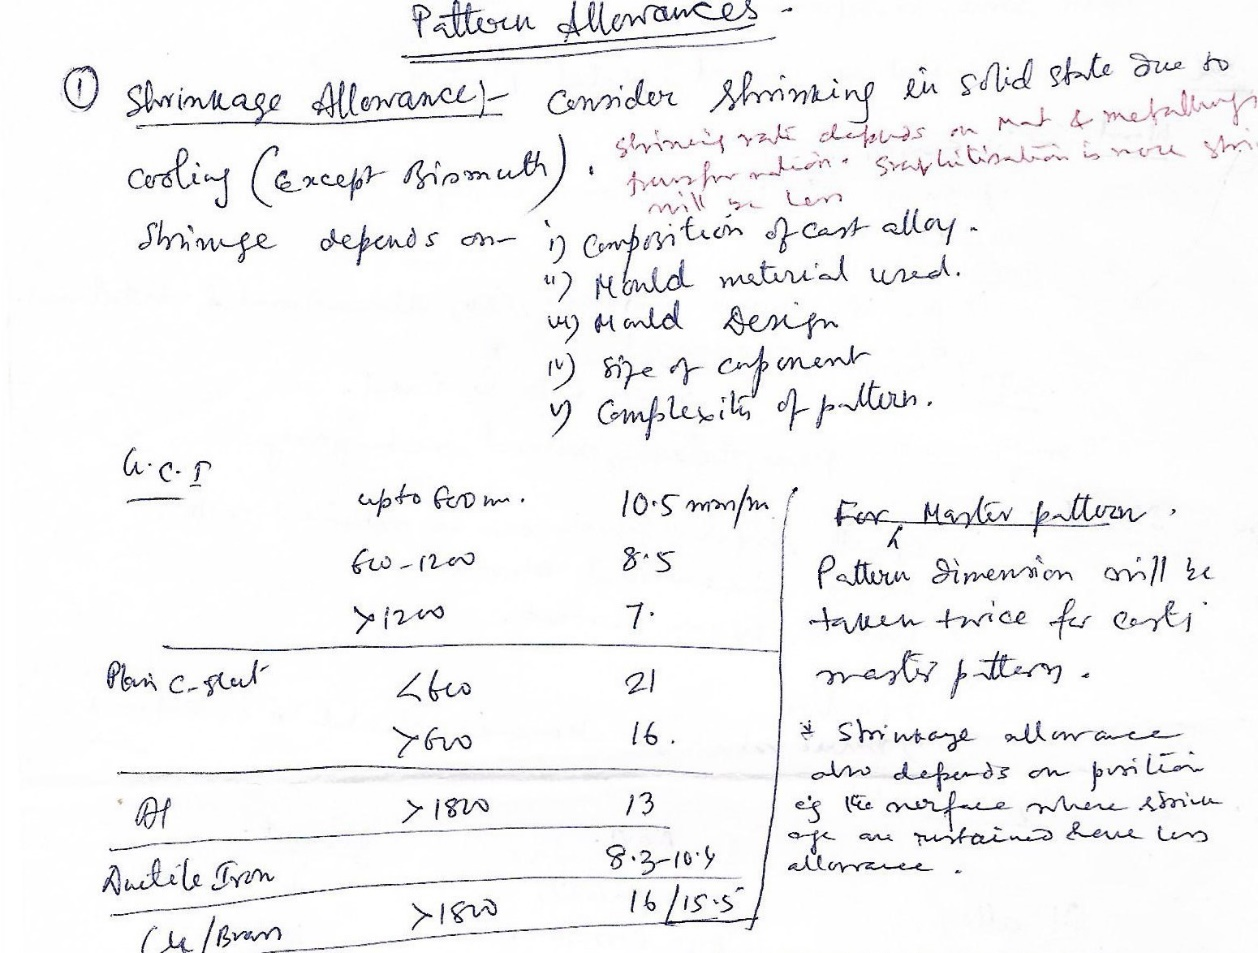 Pattern Allowances -
① Shrinkage Allowance :- Consider Shrinking in solid state due to
cooling (Except Bismuth).
Shrinkig rate depends on mat & metallurgy
transformation. Graphitisation is more shri
will be less
Shrinage depends on - i) Composition of cast alloy.
ii) Mould material used.
iii) Mould Design
iv) Size of component
v) Complexity of pattern.
G.C.I
upto 600 m. 10.5 mm/m
600-1200 8.5
>1200 7.
Plain C-steel <600 21
>600 16.
Al >1800 13
Ductile Iron 8.3-10.4
Cu/Brass >1800 16/15.5
For Master pattern.
Pattern dimension will be
taken twice for casti
master pattern.
* Shrinkage allowance
also depends on position
eg the surface where shrink
age are sustained have less
allowance.